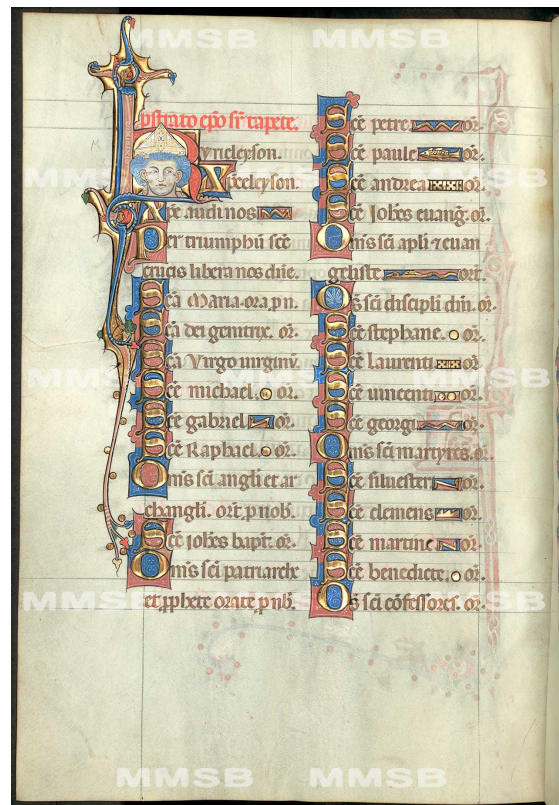 pstrato epo sr tapete.
Kyrieleyson.
Xpeeleyson.
Xpe audi nos
Per triumphū sce
crucis libera nos dn̄e.
Scā Maria. ora. p n.
Scā dei genitrix. or̄.
Scā Virgo uirginū.
Scē michael. or̄.
Scē gabriel or̄.
Scē Raphael. or̄.
Omīs sc̄i angli et ar
changli. orīt. p nob̄.
Scē ioh̄es bapt̄. or̄.
Omīs sc̄i patriarche
et pphete orate p nb̄.
Scē petre or̄.
Scē paule or̄.
Scē andrea or̄.
Scē Joh̄es euanḡ. or̄.
Omīs sc̄i apl̄i ⁊ euan
geliste orīt.
Os sc̄i discipl̄i dn̄i. or̄.
Scē stephane. or̄.
Scē laurenti or̄.
Scē uincenti or̄.
Scē georgi or̄.
Omīs sc̄i martyres. or̄.
Scē siluester or̄.
Scē clemens or̄.
Scē martine or̄.
Scē benedicte. or̄.
Os sc̄i cōfessores. or̄.
MMSB MMSB
MMSB MMSB MMSB
MMSB MMSB MMSB
MMSB MMSB MMSB
MMSB MMSB